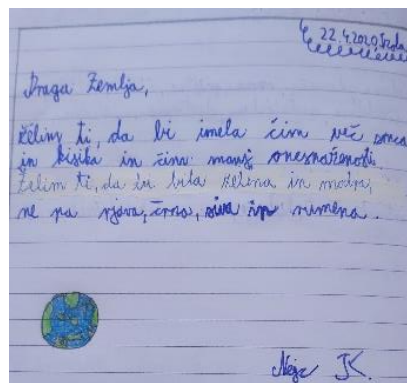 22.4.2020, Sreda
Draga Zemlja,
želim ti, da bi imela čim več sonca
in kisika in čim manj onesnaženosti.
Želim ti, da bi bila zelena in modra,
ne pa rjava, črna, siva in rumena.
Neja JK.